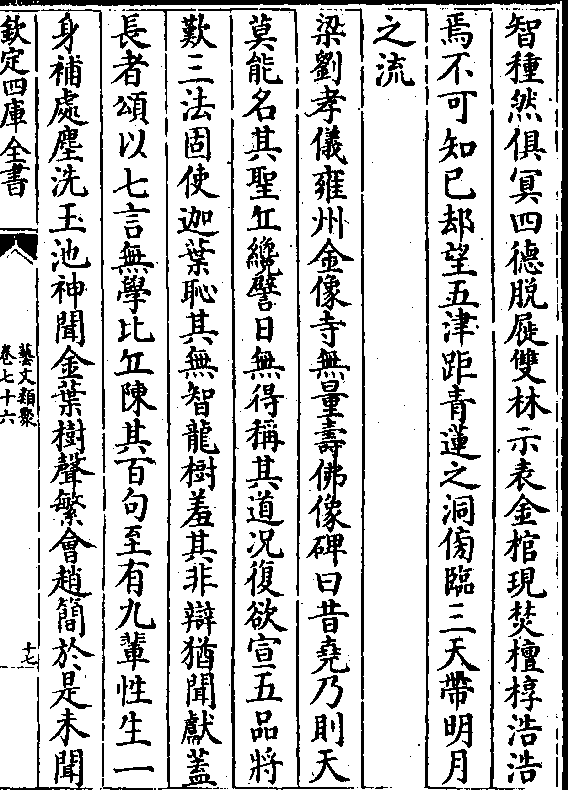 智種然俱冥四德脱屣雙林示表金棺現焚檀椁浩浩
焉不可知已却望五津距青蓮之洞傍臨三天帶明月
之流
梁劉孝儀雍州金像寺無量壽佛像碑曰昔堯乃則天
莫能名其聖丘纔譬日無得稱其道况復欲宣五品將
歎三法固使迦葉恥其無智龍樹羞其非辯猶聞獻蓋
長者頌以七言無學比丘陳其百句至有九輩性生一
身補處塵洗玉池神聞金葉樹聲繁會趙簡於是未聞
欽定四庫全書
藝文類聚
卷七十六
十七